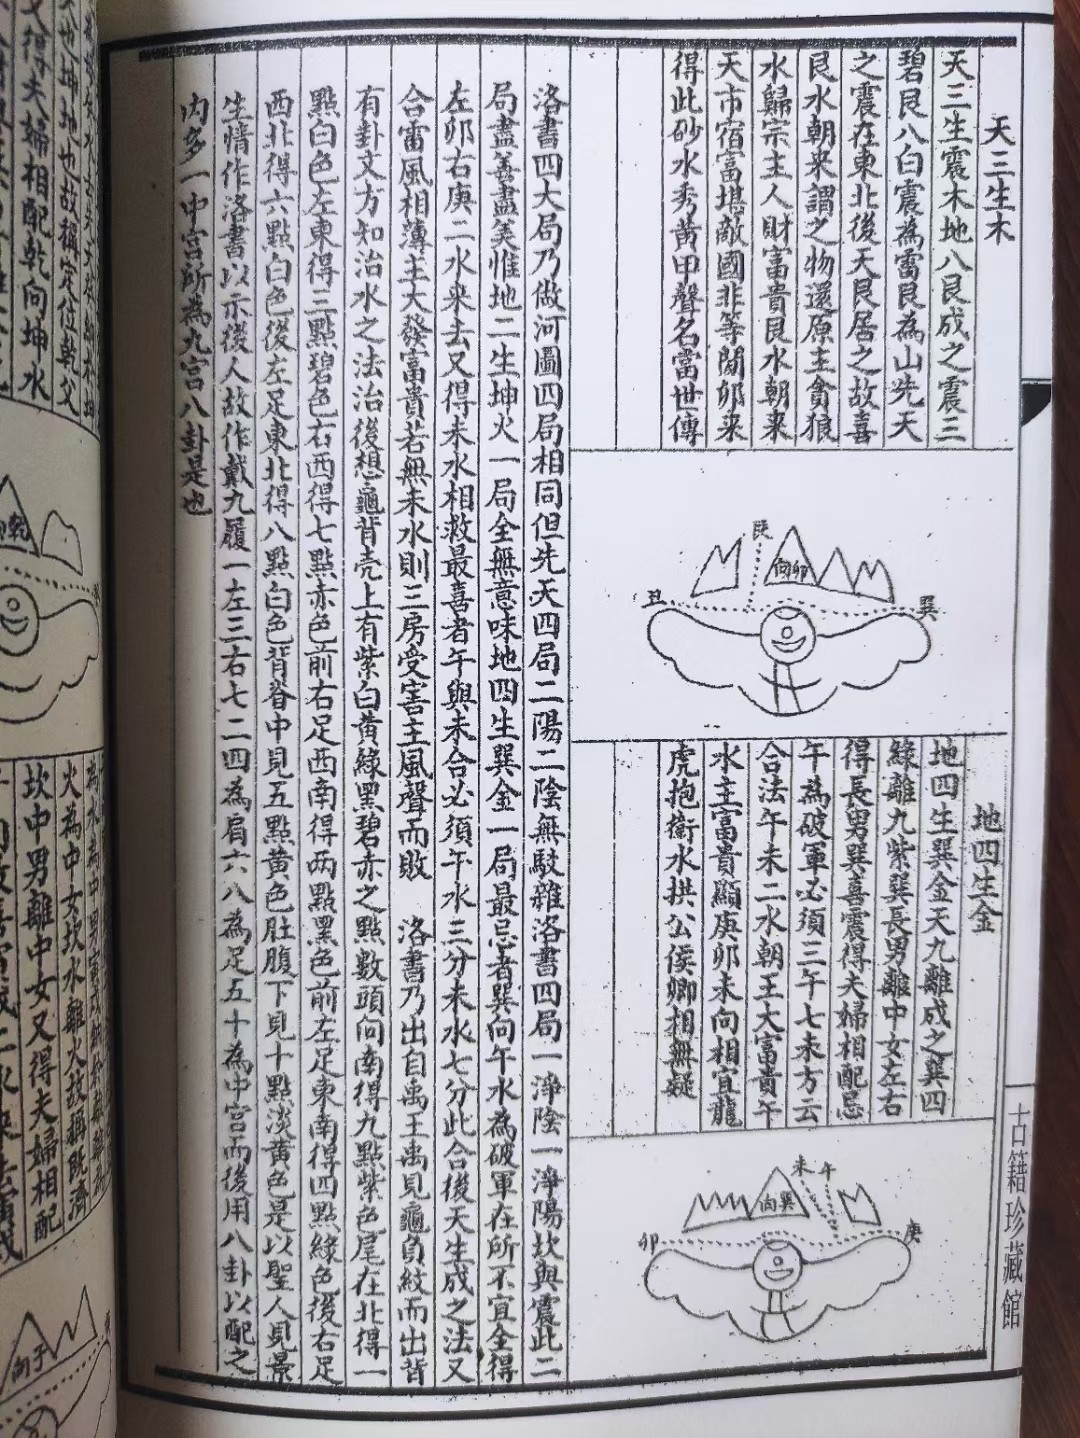 天三生木
天三生震木地八艮成之震三
碧艮八白震為雷艮為山先天
之震在東北後天艮居之故喜
艮水朝来謂之物還原主貪狼
水歸宗主人財富貴艮水朝来
天市宿富堪敵國非等閒卯来
得此砂水秀黄甲聲名當世傳
艮
向卯
丑
巽
地四生金
地四生巽金天九離成之巽四
綠離九紫巽長男離中女左右
得長男巽喜震得夫婦相配忌
午為破軍必須三午七未方云
合法午未二水朝王大富貴午
水主富貴顯庚卯未向相宜龍
虎抱衛水拱公侯卿相無疑
未
午
向巽
卯
庚
洛書四大局乃做河圖四局相同但先天四局二陽二陰無駁雜洛書四局一淨陰一淨陽坎與震此二
局盡善盡美惟地二生坤火一局全無意味地四生巽金一局最忌者巽向午水為破軍在所不宜全得
左卯右庚二水来去又得未水相救最喜者午與未合必須午水三分未水七分此合後天生成之法又
合雷風相薄主大發富貴若無未水則三房受害主風聲而敗　洛書乃出自禹王禹見龜負紋而出背
有卦文方知治水之法治後想龜背壳上有紫白黄綠黑碧赤之點數頭向南得九點紫色尾在北得一
點白色左東得三點碧色右西得七點赤色前右足西南得两點黑色前左足東南得四點綠色後右足
西北得六點白色後左足東北得八點白色背脊中見五點黄色肚腹下見十點淡黄色是以聖人見景
生情作洛書以示後人故作戴九履一左三右七二四為肩六八為足五十為中宮而後用八卦以配之
内多一中宮所為九宫八卦是也
古籍珍藏館
也坤地也故稱定位乾父
得夫婦相配乾向坤水
乾
火為中女坎水離火故稱既濟
坎中男離中女又得夫婦相配
向子